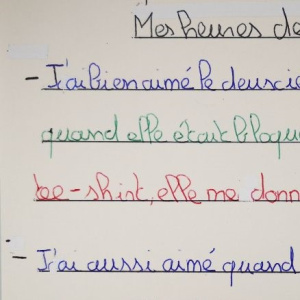 Mes heures de
- J'ai bien aimé le deuscie
quand elle était bloqu
tee-shirt, elle me donn
- J'ai aussi aimé quand